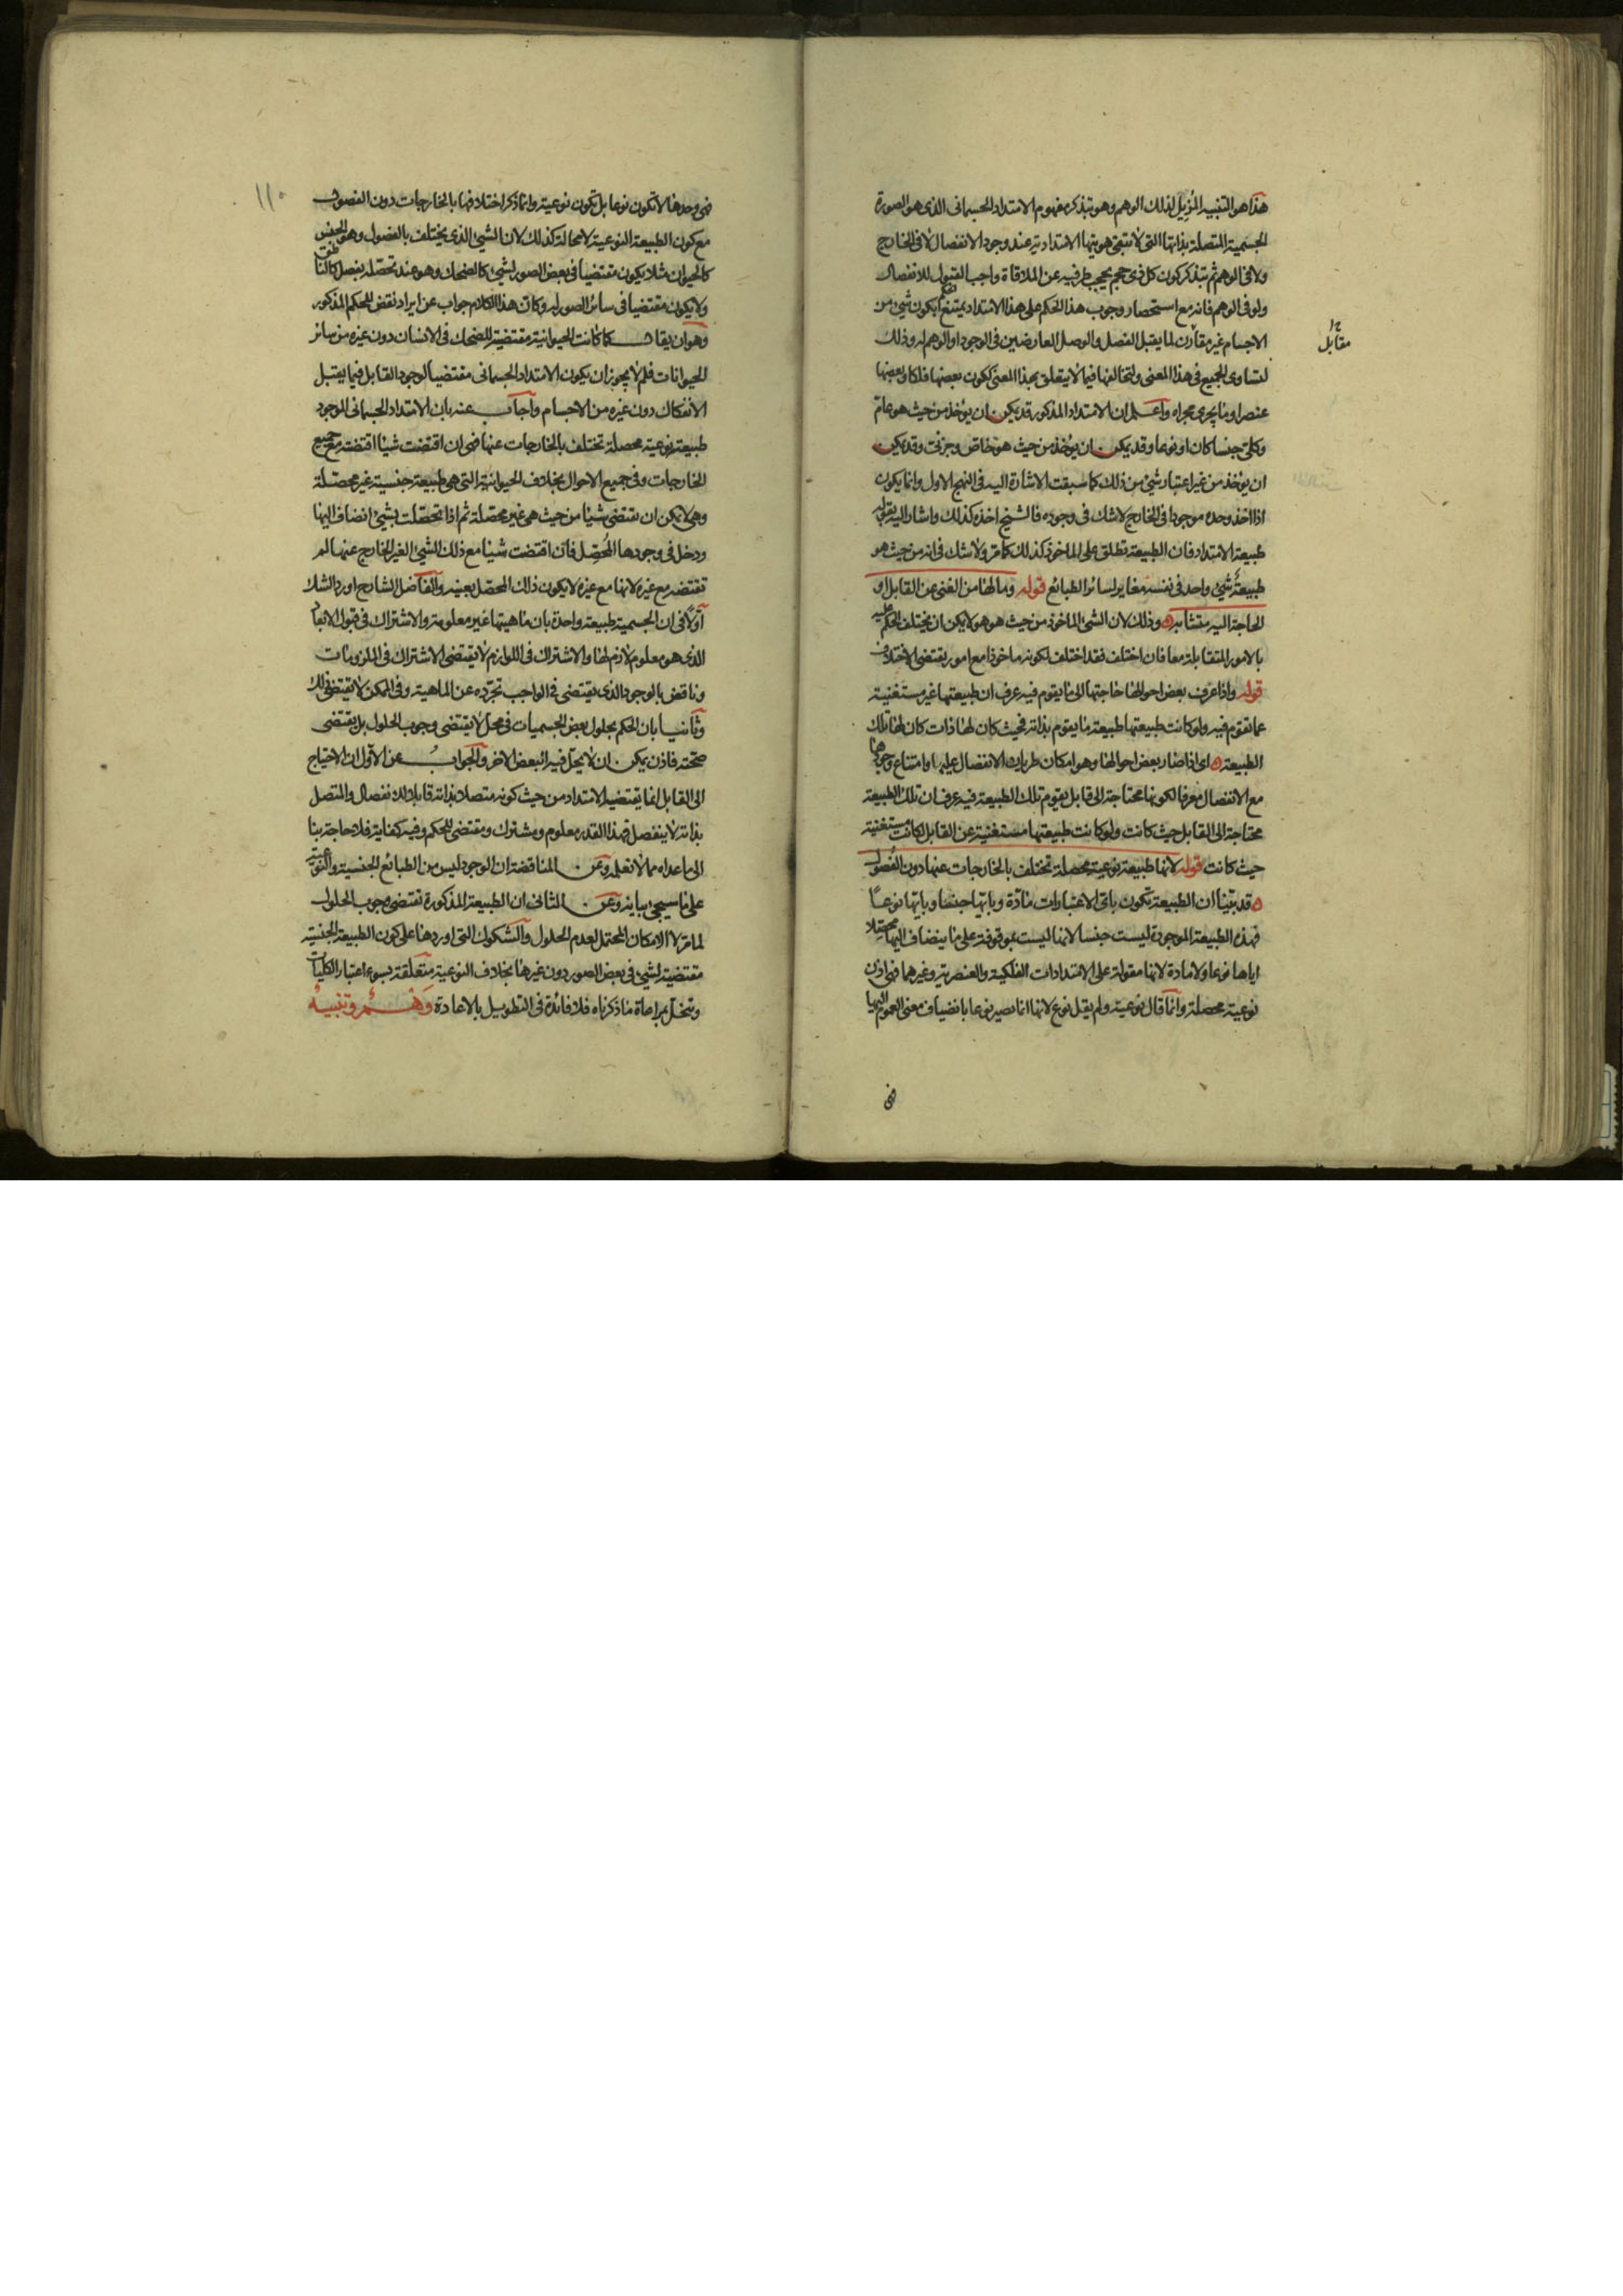 هذا هو التنبيه المزيل لذلك الوهم وهو تبذكر مفهوم الامتداد الجسمانى الذى هو الصورة
الجسمية المتصلة بذاتها التى لا تبقى هويتها الامتدادية عند وجود الانفصال لا فى الخارج
ولا فى الوهم ثم تبذكر كون كل ذى حجم يحجب طرفيه عن الملاقاة واجب القبول للانفصال
ولو فى الوهم فانه مع استحضار وجوب هذا الحكم على هذا الامتداد يمتنع ان يكون شئ من
الاجسام غير مقارن لما يقبل الفصل والوصل العارضين فى الوجود او الوهم له وذلك
مقابل
لتساوى الجميع فى هذا المعنى ولتخالفها فيما لا يتعلق بهذا المعنى ككون بعضها فلكا وبعضها
عنصرا وما يجرى مجراه واعلم ان الامتداد المذكور قد يمكن ان يؤخذ من حيث هو عام
وكلى جنسا كان او نوعا وقد يمكن ان يؤخذ من حيث هو خاص وجزئى وقد يمكن
ان يؤخذ من غير اعتبار شئ من ذلك كما سبقت الاشارة اليه فى النهج الاول وانما يكون
اذا اخذ وحده موجودا فى الخارج لا شك فى وجوده فالشيخ اخذه كذلك واشار اليه بقوله
طبيعة الامتداد فان الطبيعة تطلق على الماخوذ كذلك كما مر ولا شك فى انه من حيث هو
طبيعة شئ واحد فى نفسه مغاير لسائر الطبائع قوله وما لها من الغنى عن القابل او
الحاجة اليه متشابه ه وذلك لان الشئ الماخوذ من حيث هو هو لا يمكن ان يختلف الحكم عليه
بالامور المتقابلة معا فان اختلف فقد اختلف لكونه ماخوذا مع امور يقتضى الاختلاف
قوله واذا عرف بعض احوالها حاجتها الى ما يقوم فيه عرف ان طبيعتها غير مستغنية
عما تقوم فيه ولو كانت طبيعتها طبيعة ما يقوم بذاته فحيث كان لها ذات كان لها تلك
الطبيعة ه اى اذا صار بعض احوالها وهو امكان طريان الانفصال عليها وامتناع وجودها
مع الانفصال معرفا لكونها محتاجة الى قابل يقوم تلك الطبيعة فيه عرف ان تلك الطبيعة
محتاجة الى القابل حيث كانت ولو كانت طبيعتها مستغنية عن القابل لكانت مستغنية
حيث كانت قوله لانها طبيعة نوعية محصلة تختلف بالخارجات عنها دون الفصول
ه قد بينا ان الطبيعة تكون باى الاعتبارات مادة وبايها جنسا وبايها نوعا
فهذه الطبيعة الموجودة ليست جنسا لانها ليست موقوفة على ما ينضاف اليها محصلا
اياها نوعا ولا مادة لانها مقولة على الامتدادات الفلكية والعنصرية وغيرهما فهى اذن
نوعية محصلة وانما قال نوعية ولم يقل نوع لانها انما تصير نوعا بانضياف معنى العموم اليها
فهى
١١٠
فهى وحدها لا تكون نوعا بل تكون نوعية وانما ذكر اختلافها بالخارجات دون الفصول
مع كون الطبيعة النوعية لا محالة كذلك لان الشئ الذى يختلف بالفصول وهو الجنس
كالحيوان مثلا يكون مقتضيا فى بعض الصور لشئ كالضحك وهو عند تحصله بفصل كالناطق
ولا يكون مقتضيا فى سائر الصور له وكان هذا الكلام جواب عن ايراد نقض للحكم المذكور
وهو ان يقال كما كانت الحيوانية مقتضية للضحك فى الانسان دون غيره من سائر
الحيوانات فلم لا يجوز ان يكون الامتداد الجسمانى مقتضيا لوجود القابل فيما يقبل
الانفكاك دون غيره من الاجسام واجاب عنه بان الامتداد الجسمانى الموجود
طبيعة نوعية محصلة تختلف بالخارجات عنها فهى ان اقتضت شيئا اقتضته مع جميع
الخارجات وفى جميع الاحوال بخلاف الحيوانية التى هى طبيعة جنسية غير محصلة
وهى لا يمكن ان تقتضى شيئا من حيث هى غير محصلة ثم اذا تحصلت بشئ انضاف اليها
ودخل فى وجودها المحصل فان اقتضت شيئا مع ذلك الشئ الغير الخارج عنها لم
تقتضه مع غيره لانها مع غيره لا يكون ذلك المحصل بعينه والفاضل الشارح اورد الشك
اولا فى ان الجسمية طبيعة واحدة بان ماهيتها غير معلومة والاشتراك فى قبول الابعاد
الذى هو معلوم لازم لها والاشتراك فى اللوازم لا يقتضى الاشتراك فى الملزومات
وناقض بالوجود الذى يقتضى فى الواجب تجرده عن الماهية وفى الممكن لا يقتضى ذلك
وثانيا بان الحكم بحلول بعض الجسميات فى محل لا يقتضى وجوب الحلول بل يقتضى
صحته فاذن يمكن ان لا يحل فيه البعض الاخر والجواب عن الاول ان الاحتياج
الى القابل انما يقتضيه الامتداد من حيث كونه متصلا بذاته قابلا للانفصال والمتصل
بذاته لا ينفصل فهذا القدر معلوم ومشترك ومقتضى للحكم وفيه كفاية فلا حاجة بنا
الى ما عداه مما لا نعلمه وعن المناقضة ان الوجود ليس من الطبائع الجنسية والنوعية
على ما سيجئ بيانه وعن الثانى ان الطبيعة المذكورة تقتضى وجوب الحلول
لما مر لا الامكان المحتمل لعدم الحلول والشكوك التى اوردها على كون الطبيعة الجنسية
مقتضية لشئ فى بعض الصور دون غيرها بخلاف النوعية متعلقة بسوء اعتبار الكليات
وتنحل بمراعاة ما ذكرناه فلا فائدة فى التطويل بالاعادة وهم وتنبيه